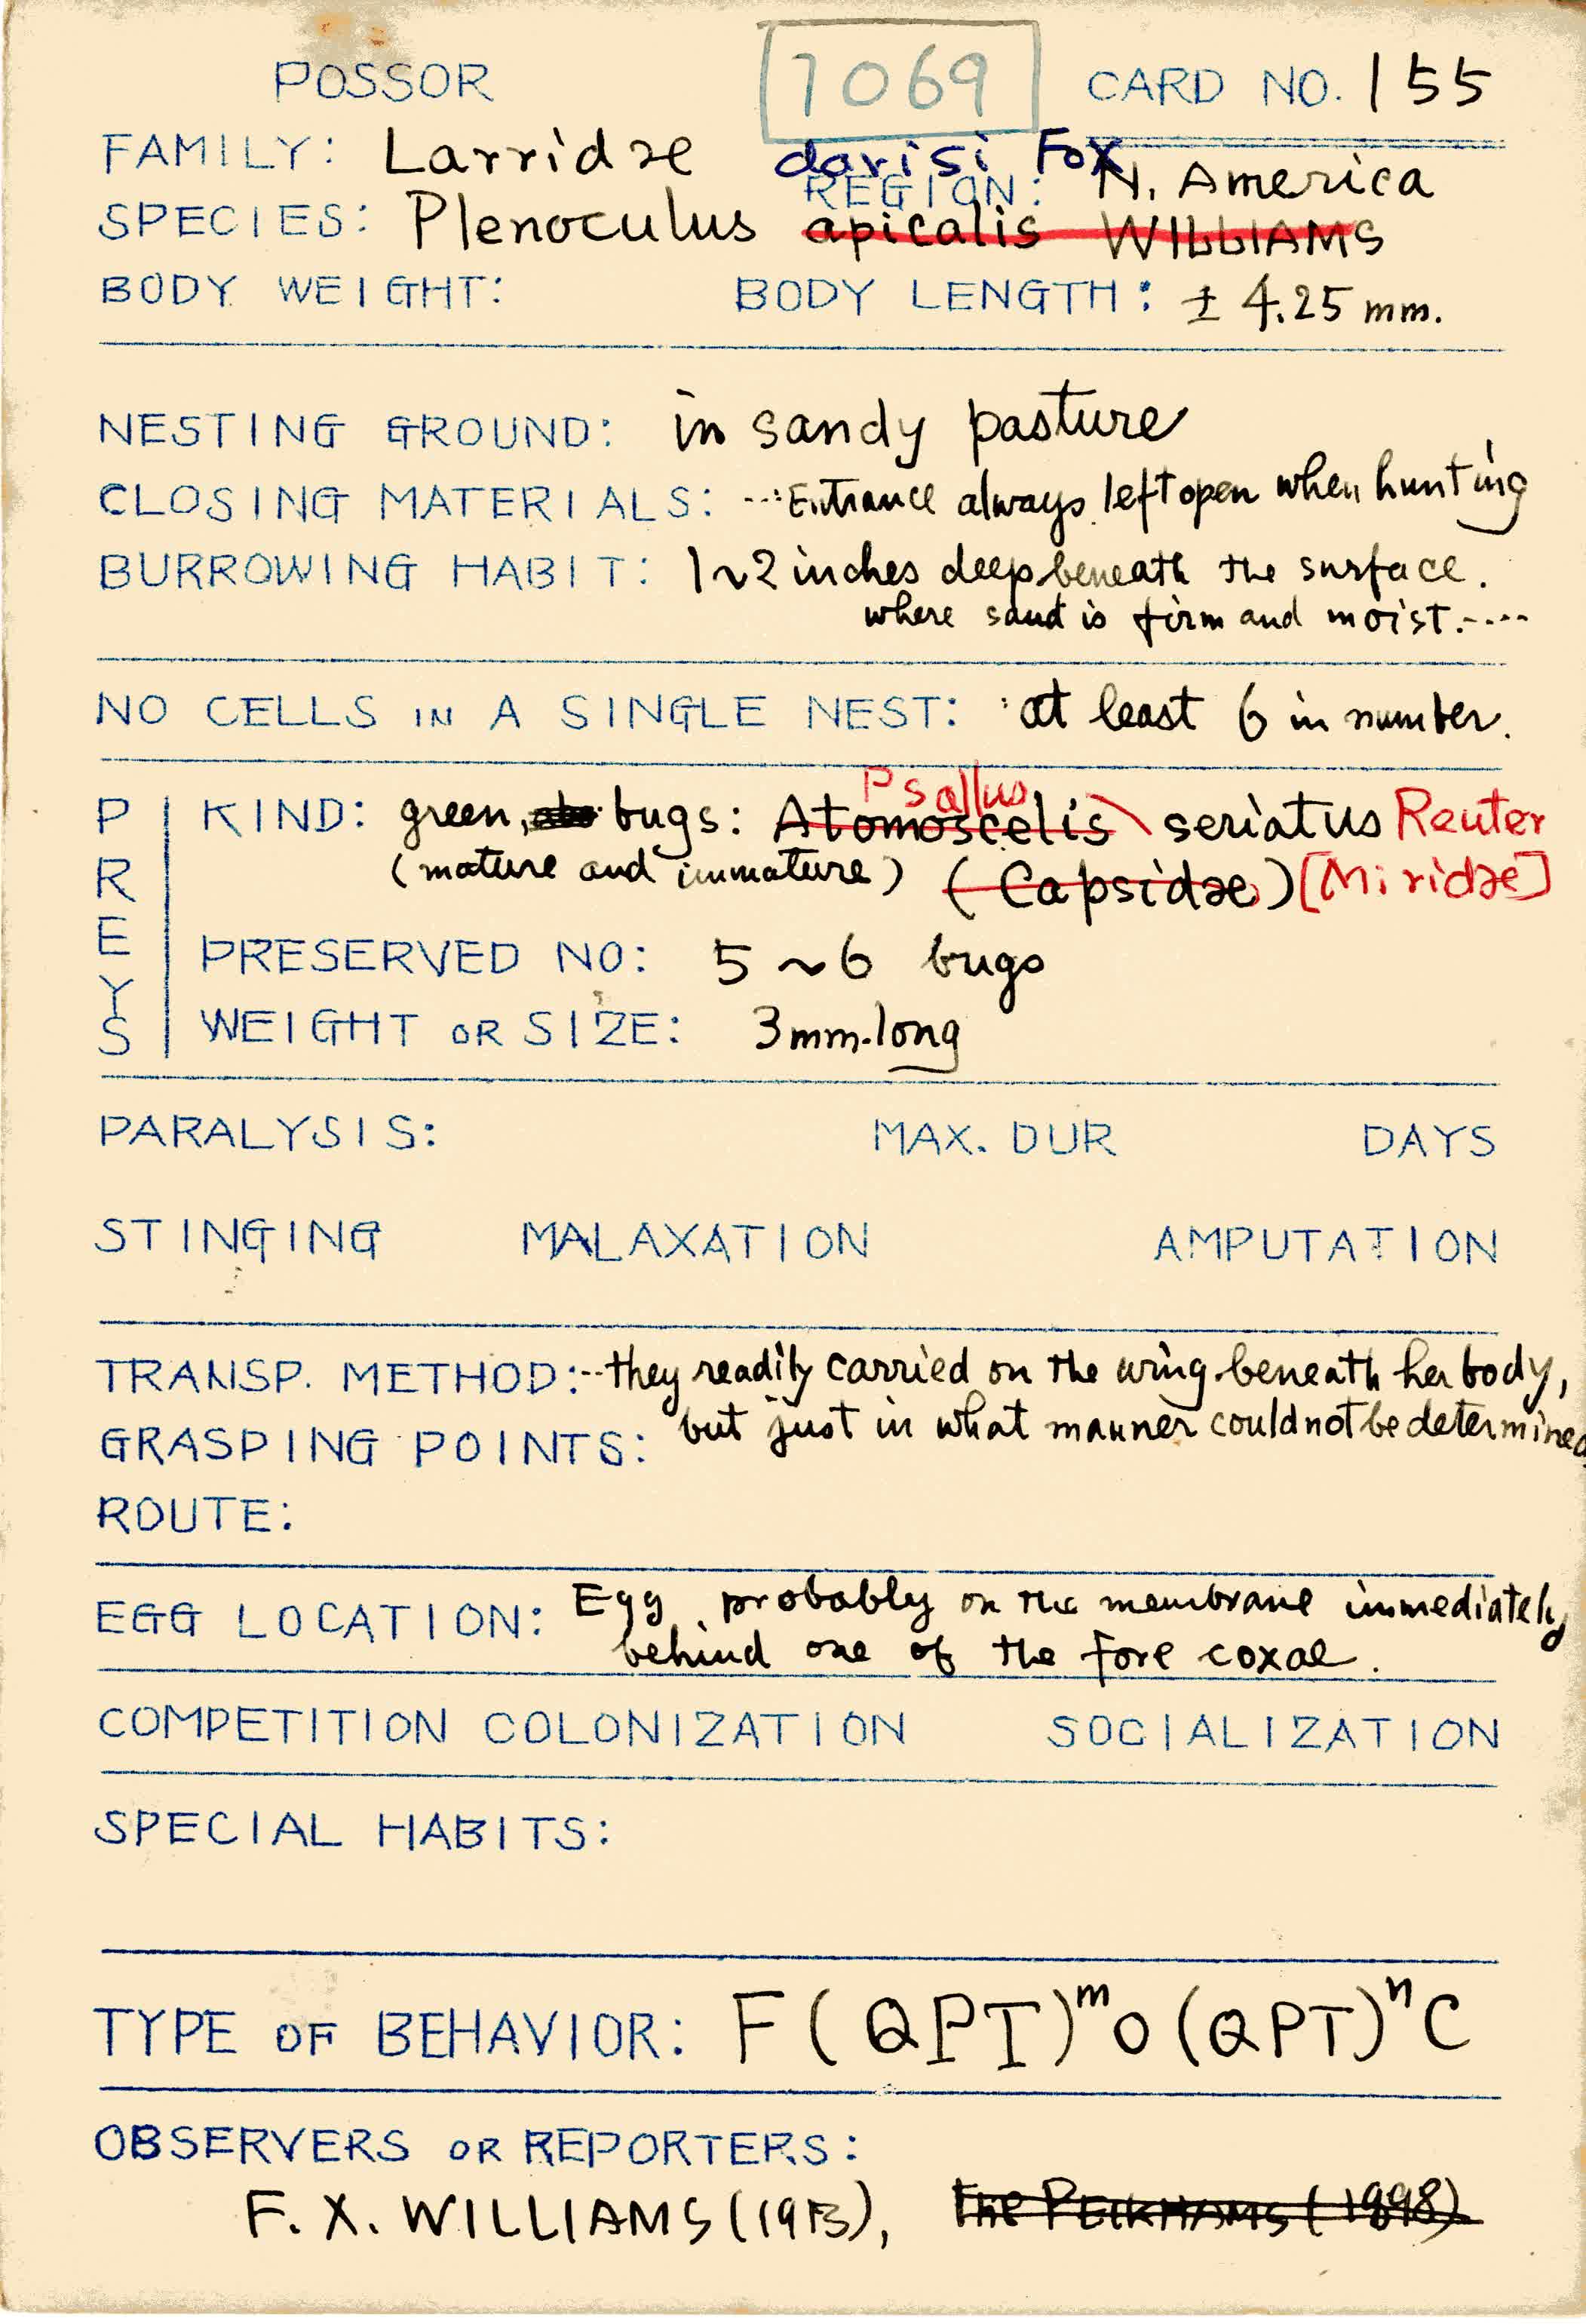 POSSOR
1069
CARD NO. 155
FAMILY: Larridae
davisi Fox
REGION: N. America
SPECIES: Plenoculus apicalis WILLIAMS
BODY WEIGHT: BODY LENGTH: ± 4.25 mm.
NESTING GROUND: in sandy pasture
CLOSING MATERIALS: ...Entrance always left open when hunting
BURROWING HABIT: 1~2 inches deep beneath the surface.
where sand is firm and moist.----
NO CELLS IN A SINGLE NEST: at least 6 in number.
PREYS
Psallus
KIND: green, bugs: Atomoscelis seriatus Reuter
(mature and immature) (Capsidae) [Miridae]
PRESERVED NO: 5~6 bugs
WEIGHT OR SIZE: 3mm.long
PARALYSIS: MAX. DUR DAYS
STINGING MALAXATION AMPUTATION
TRANSP. METHOD:--they readily carried on the wing beneath her body,
but just in what manner could not be determined.
GRASPING POINTS:
ROUTE:
EGG LOCATION: Egg probably on the membrane immediately
behind one of the fore coxae.
COMPETITION COLONIZATION SOCIALIZATION
SPECIAL HABITS:
TYPE OF BEHAVIOR: F(QPT)ᵐO(QPT)ⁿC
OBSERVERS OR REPORTERS:
F. X. WILLIAMS (1913), the PECKHAMS (1898)